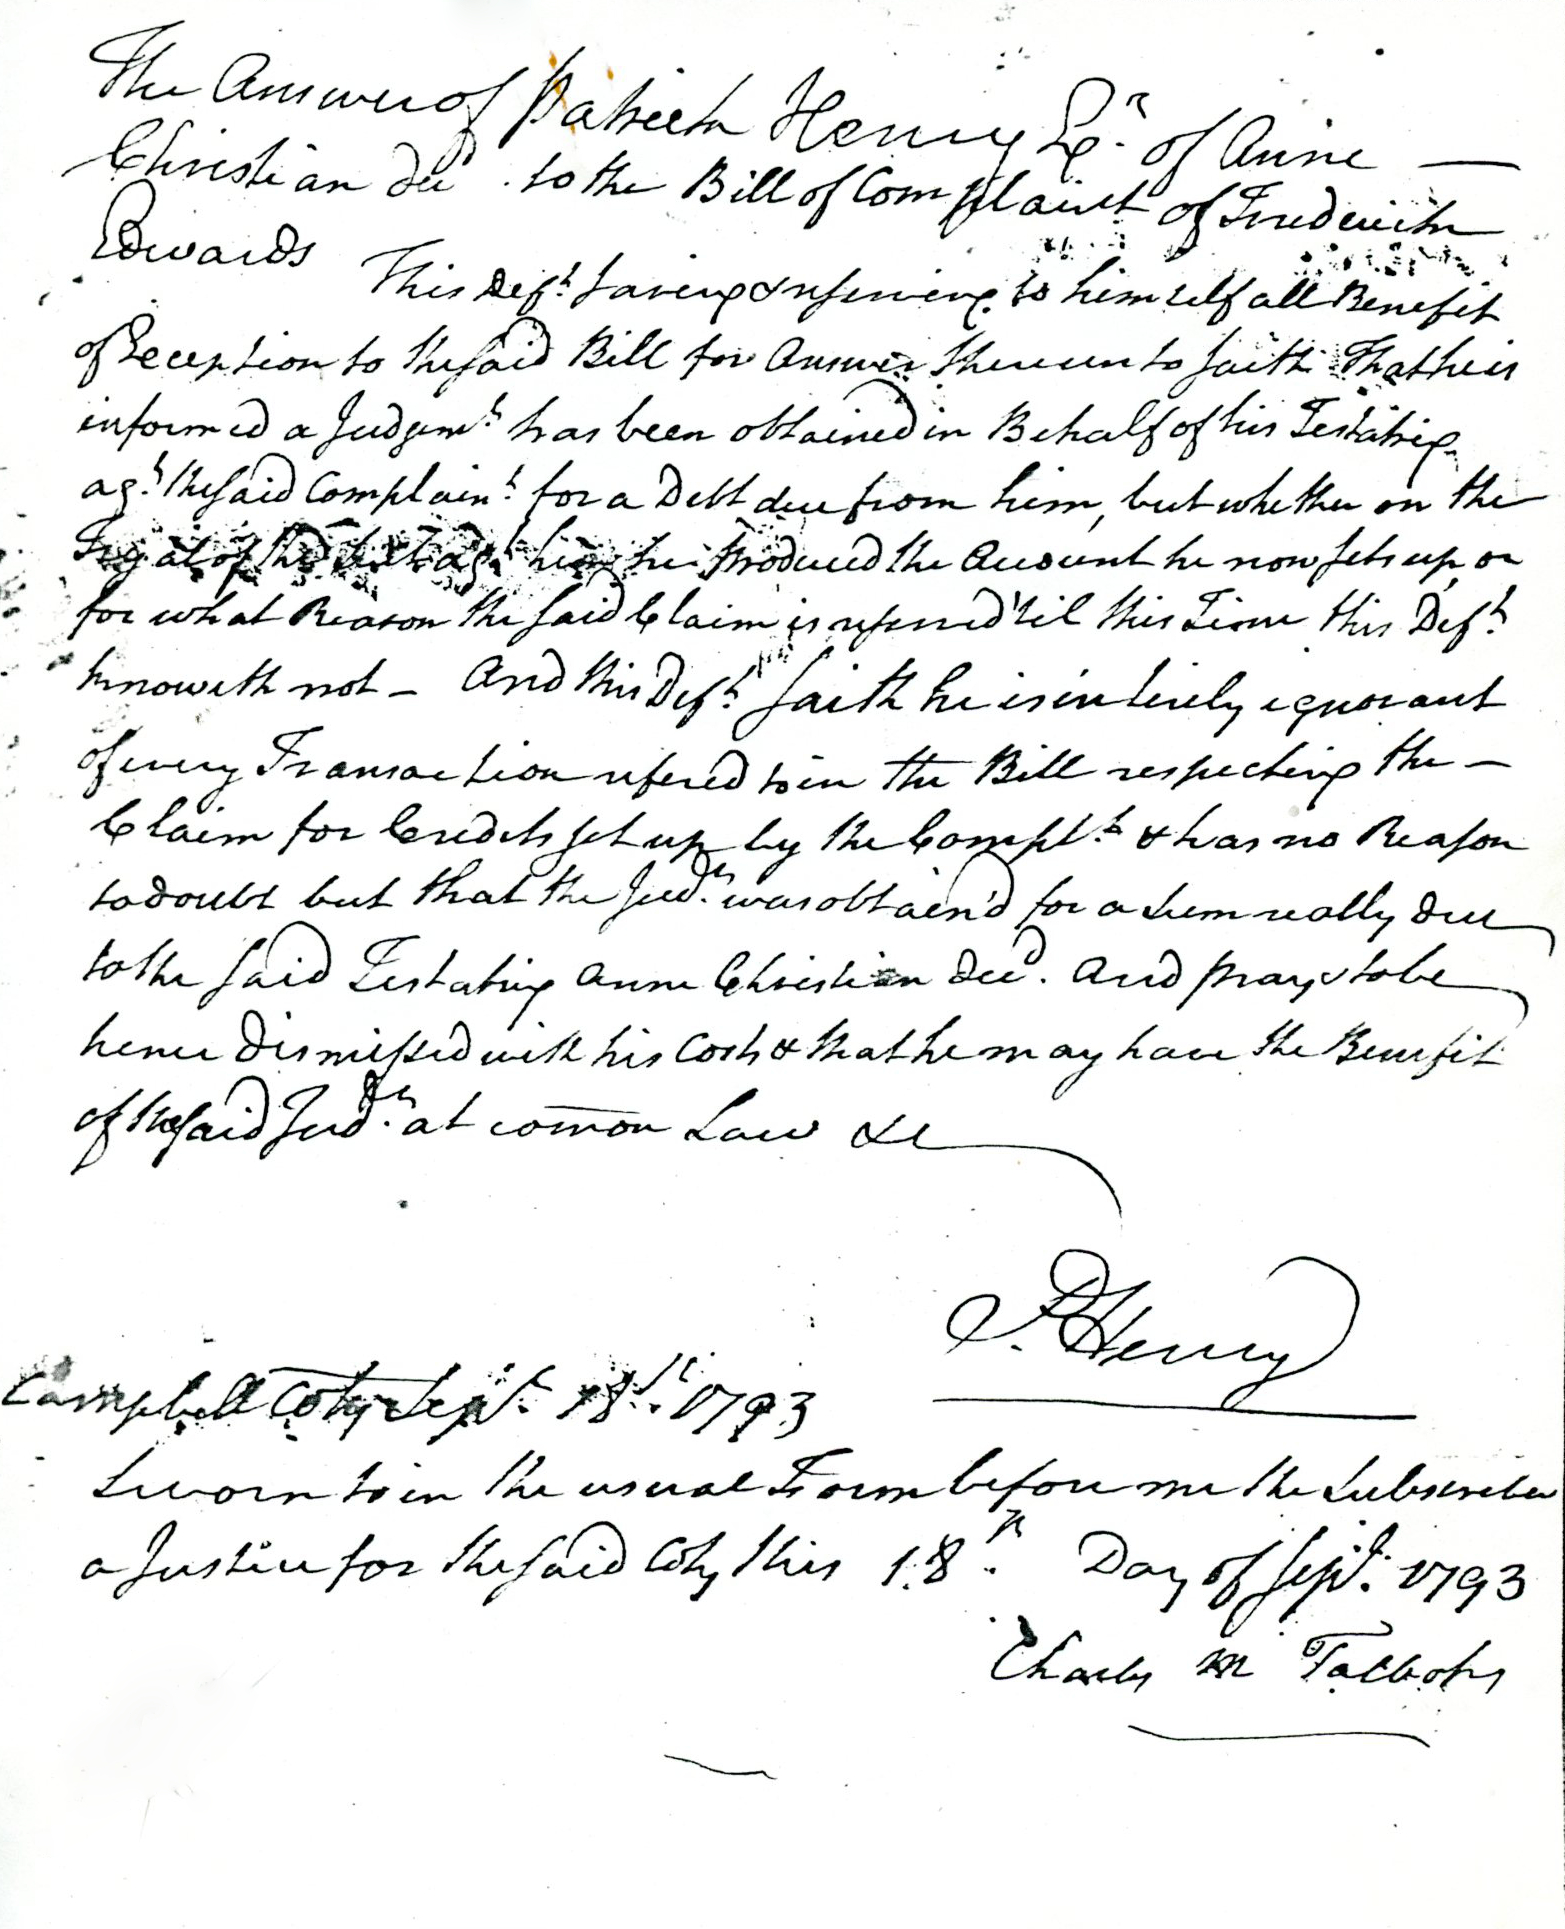 The Answer of Patrick Henry Exr. of Anne —
Christian decd. to the Bill of Complaint of Frederick
Edwards
This Deft. saving & reserving to himself all Benefit
of Exception to the said Bill for Answer thereunto saith That he is
informed a Judgemt. has been obtained in Behalf of his Testatrix
agt. the said Complaint. for a Debt due from him, but whether on the
Tryal of the Suit agt. him he produced the Account he now sets up, or
for what Reason the said Claim is reserved 'til this Time this Deft.
knoweth not – And this Deft. saith he is intirely ignorant
of every Transaction refered to in the Bill respecting the –
Claim for Credits set up by the Complt. & has no Reason
to doubt but that the Judt. was obtain'd for a Sum really due
to the said Testatrix Anne Christian decd. And prays to be
hence dismissed with his Costs & that he may have the Benefit
of the said Judt. at common Law &c
P. Henry
Campbell Coty Sept. 18th. 1793
Sworn to in the usual Form before me the Subscriber
a Justice for the said Coty this 18th. Day of Sept. 1793
Charles M Talbots